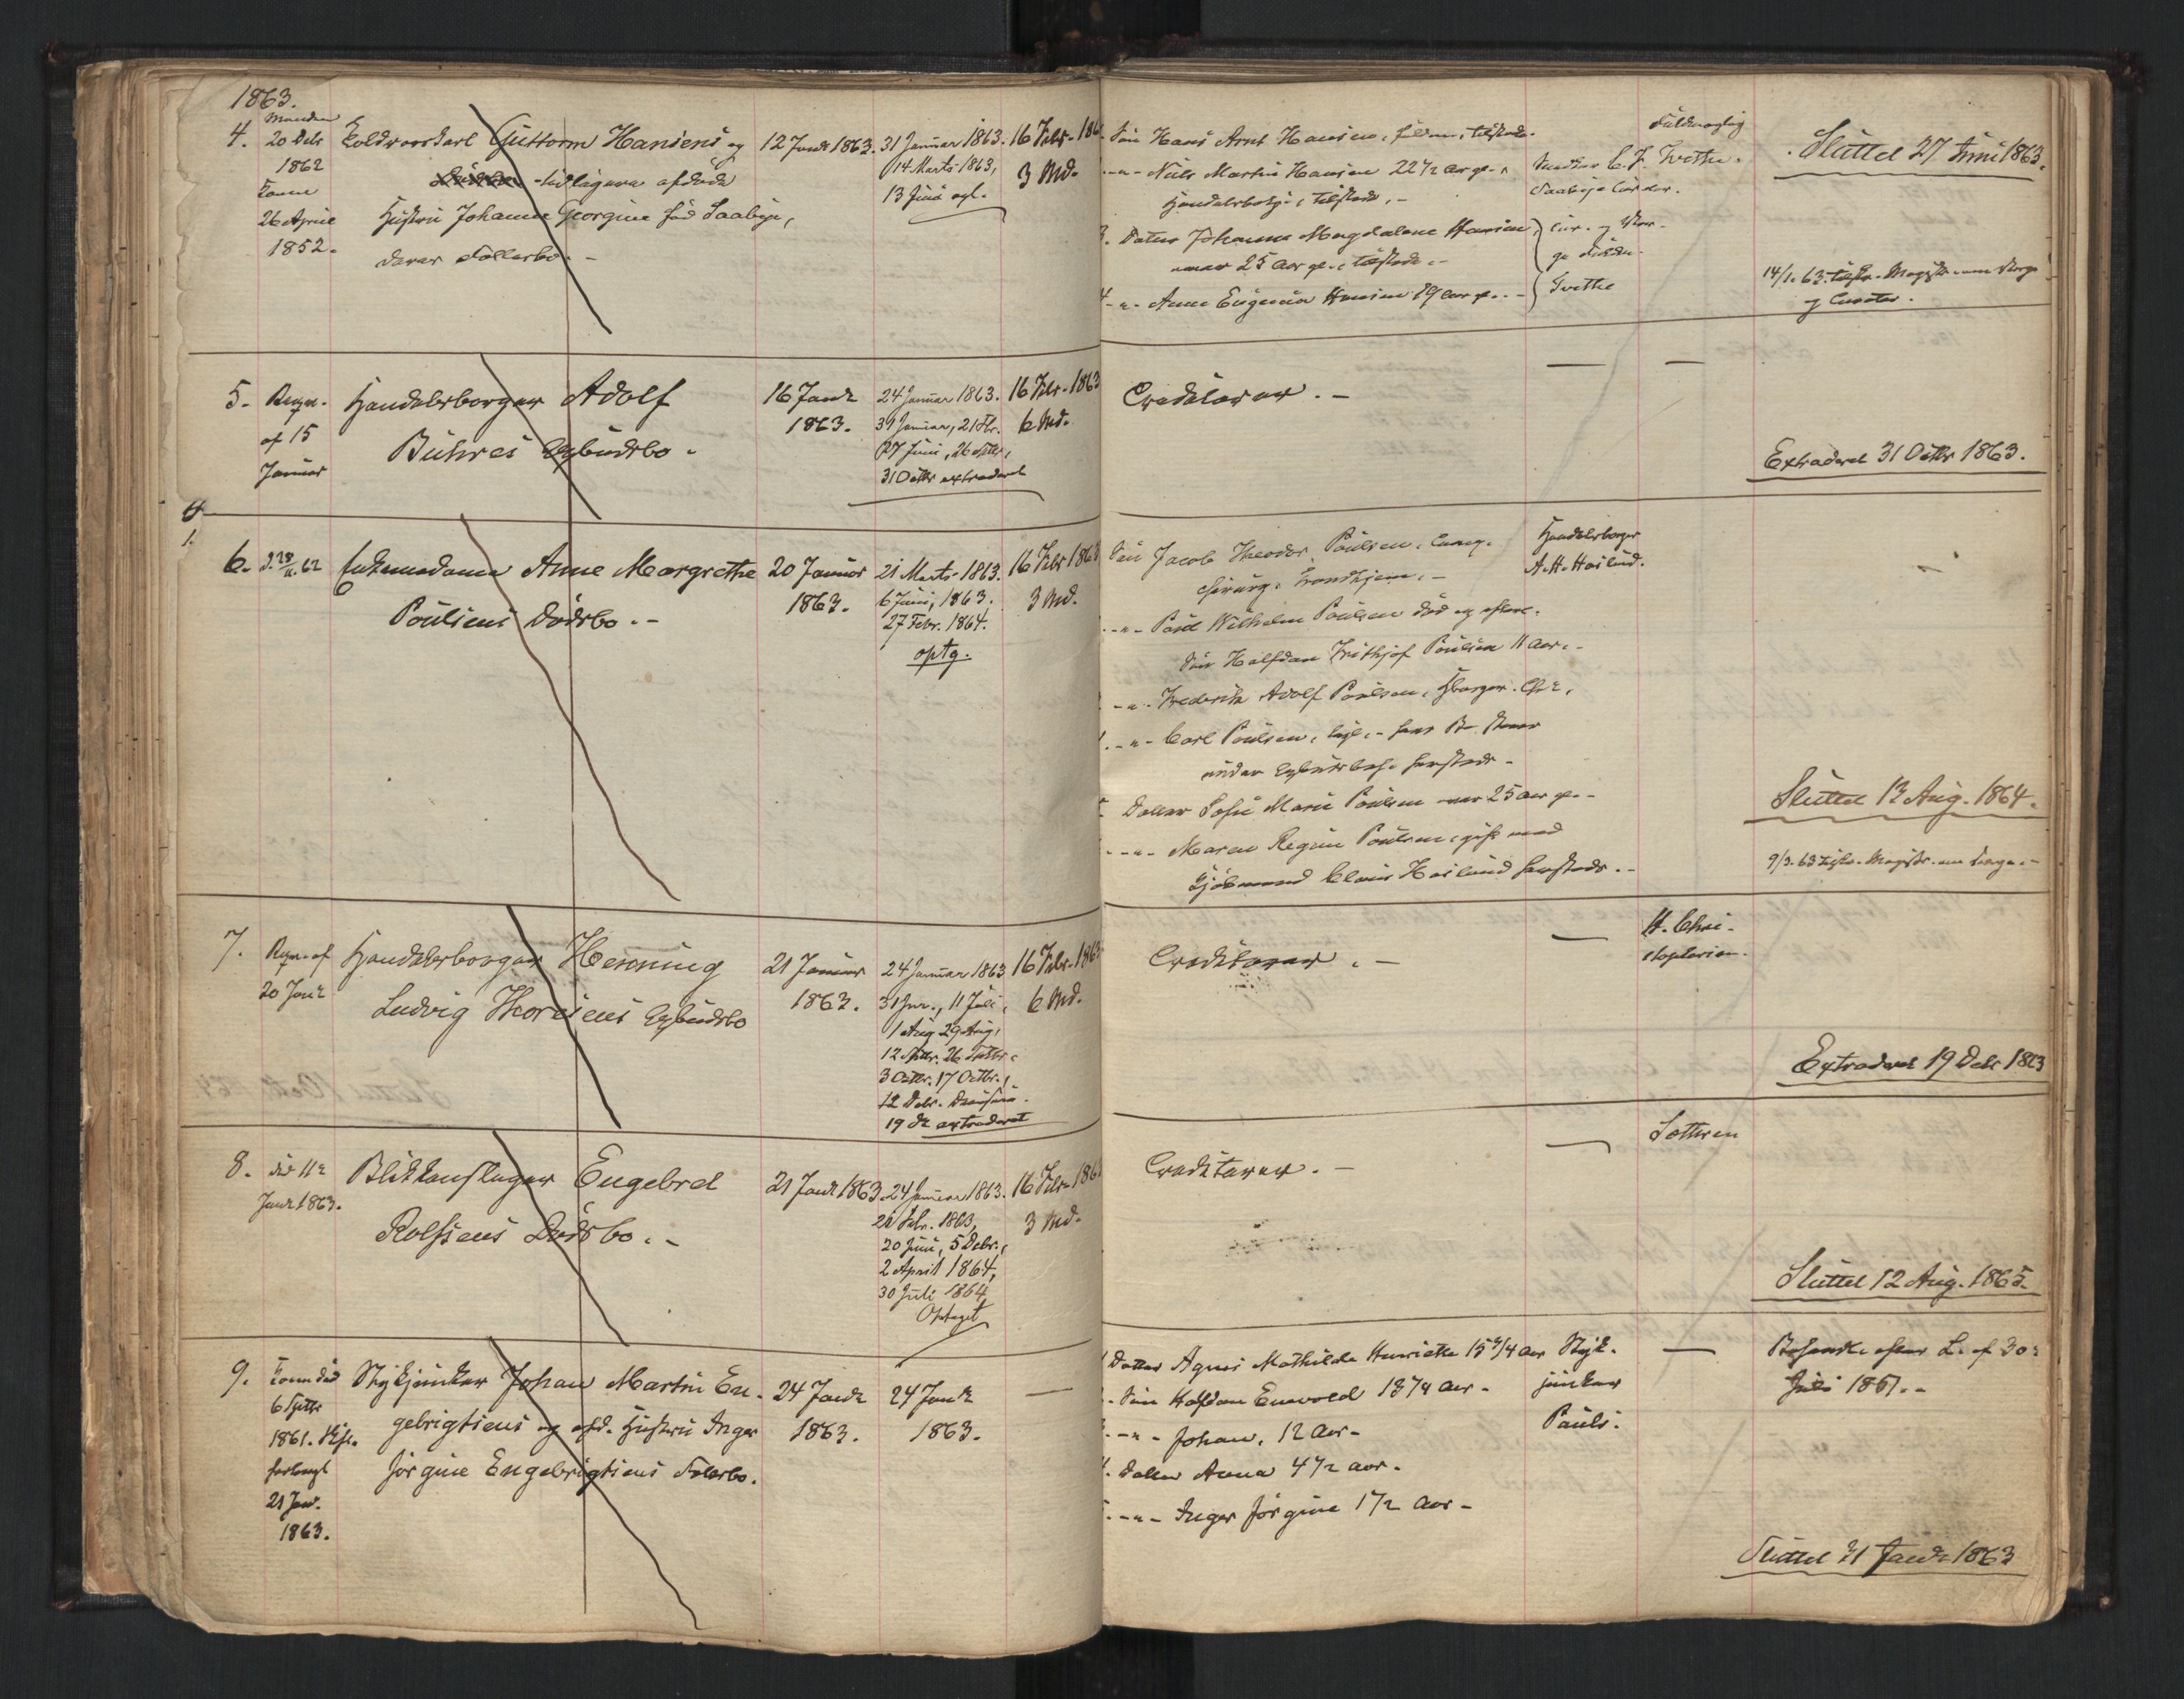 1863.
4. Manden
20 Debr
1862
Konen
26 April
1852.
Guttorm Hansens og
tidligere afdøde
Hustru Johanne Georgine fød Saabye,
deres Fællesbo. -
12 Janr 1863.
31 Januar 1863.
14 Marts 1863,
13 Juni
16 Febr. 186
3 Md.
Søn Hans Arnt Hansen, fuldm. i tilstede.
-"- Niels Martin Hansen 22 1/2 Aar gl.,
Handelsbetj. i tilstede, -
3. Datter Johanne Magdalene Hansen
over 25 Aar gl. tilstede. -
4 -"- Anne Eugenia Hansen 19 Aar gl. -
Fuldmægtig
C. F. Tvethe.
Saabye
Tvethe
Sluttet 27 Juni 1863.
14/1. 63. Magistr. om Værge
og Curator.
5. Reqv.
af 15
Januar
Handelsborger Adolf
Bühres Opbudsbo.
16 Janr
1863.
24 Januar 1863.
31 Januar, 21 Fbr.
27 Juni, 26 Septbr,
31 Octbr extraderet
16 Febr. 1863
6 Md.
Creditorer. -
Extraderet 31 Octbr 1863.
6. d. 28/11. 62
Enkemadame Anne Margrethe
Poulsens Dødsbo. -
20 Januar
1863.
21 Marts 1863.
6 Juni, 1863.
27 Febr. 1864.
optg.
16 Febr 1863
3 Md.
Søn Jacob Theodor Poulsen,
Chirurg. Trondhjem. -
-"- Poul Wilhelm Poulsen død og efterl.
Søn Halfdan Frithjof Poulsen 11 Aar. -
-"- Frederik Adolf Poulsen, Hborger.
-"- Carl Poulsen,
under Opbudsbeh. hersteds -
Datter Sofie Marie Poulsen over 25 Aar gl. -
-"- Maren Regine Poulsen, gift med
Kjøbmand Claus Haslund hersteds. -
Handelsborger
A. H. Haslund.
Sluttet 13 Aug. 1864.
9/3. 63 Magistr. om Værge. -
7. Reqv. af
20 Janr
Handelsborger Henning
Ludvig Thoresens Opbudsbo
21 Januar
1863.
24 Januar 1863
31 Jnr., 11 Juli,
1 Aug 29 Aug,
12 Septbr. 26 Septbr,
3 Octbr. 17 Octbr.,
12 Debr.
19 Dr extraderet
16 Febr. 1863
6 Md.
Creditorer. -
H. Chri-
stophersen.
Extraderet 19 Debr 1863
8. død 11r
Janr 1863.
Blikkenslager Engebret
Rolfsens Dødsbo. -
21 Janr 1863.
24 Januar 1863.
21 Febr. 1863,
20 Juni, 5 Debr.,
2 April 1864,
30 Juli 1864
Optaget
16 Febr. 186
3 Md.
Creditorer. -
Sluttet 12 Aug. 1865.
9. Konen død
6 Septbr
1861. Skft.
forlangt
21 Jan.
1863.
Stykjunker Johan Martin En-
gebrigtsens og afd. Hustru Inger
Jørgine Engebrigtsens Fællesbo.
24 Janr
1863.
24 Janr
1863.
Datter Agnes Mathilde Henriette 15 3/4 Aar
Søn Halfdan Enevold 13 3/4 Aar -
-"- Johan, 12 Aar -
4. Datter Anna 4 1/2 Aar.
-"- Inger Jørgine 1 1/2 Aar -
Styk-
junker
Pauls.
efter L. af 30r
Juli 1851. -
Sluttet 31 Janr 1863